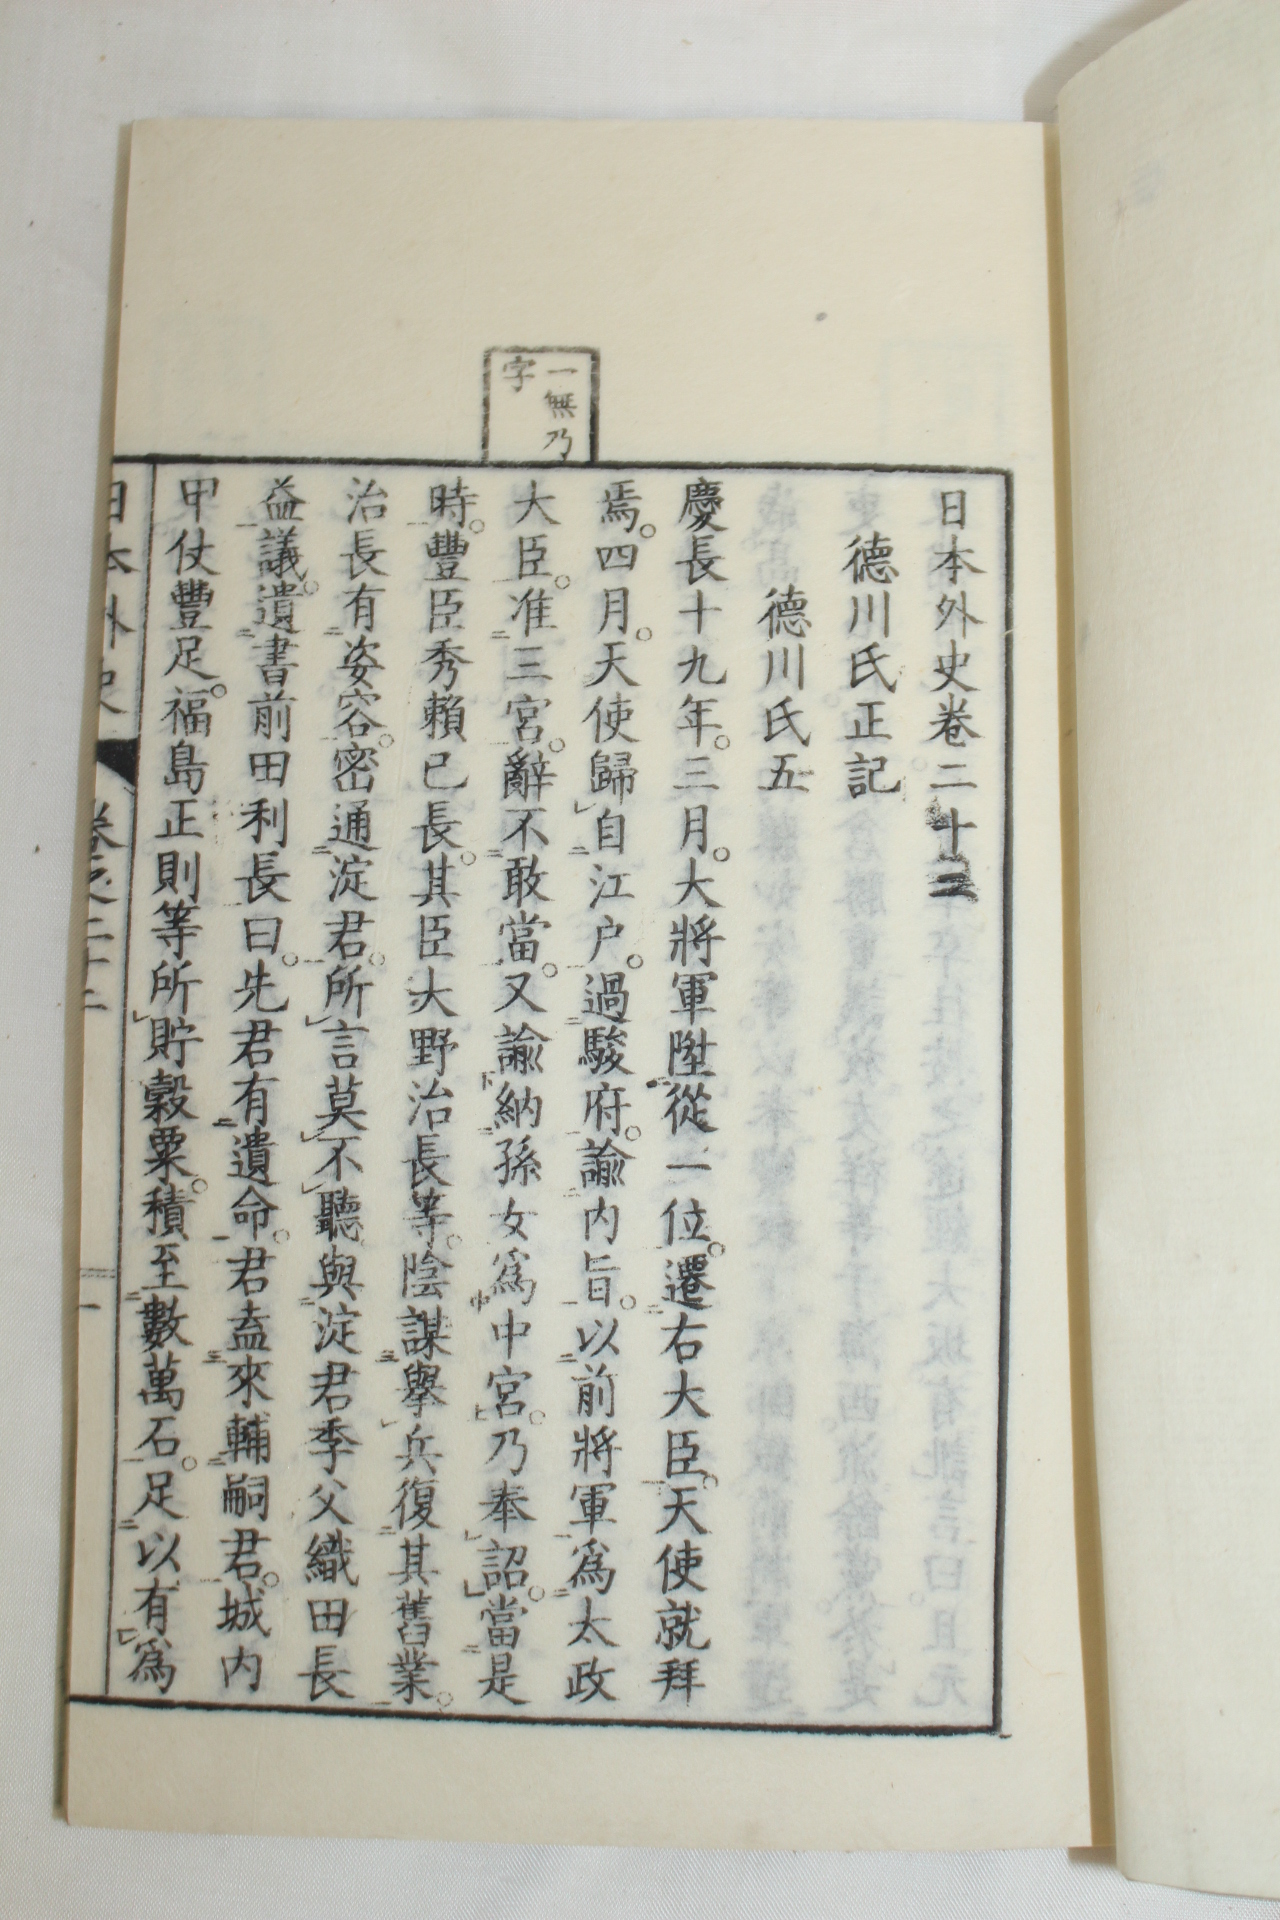 一無乃
字
日本外史卷二十二
德川氏正記
德川氏五
慶長十九年。三月。大將軍陞從一位。遷右大臣。天使就拜
焉。四月。天使歸自江户。過駿府。諭内旨。以前將軍爲太政
大臣。准三宮。辭不敢當。又諭納孫女爲中宮。乃奉詔。當是
時。豐臣秀賴已長。其臣大野治長等。陰謀擧兵復其舊業。
治長有姿容。密通淀君。所言莫不聽。與淀君季父織田長
益議。遺書前田利長曰。先君有遺命。君盍來輔嗣君。城内
甲仗豐足。福島正則等所貯穀粟。積至數萬石。足以有爲
日本外史 卷之二十二 一